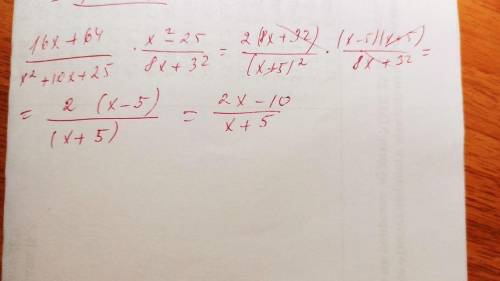 (16x+64)/(x²+10x+25) · (x²-25)/(8x+32) = 2(8x+32)/(x+5)² · (x-5)(x+5)/(8x+32) =
= 2 (x-5)/(x+5) = (2x-10)/(x+5)